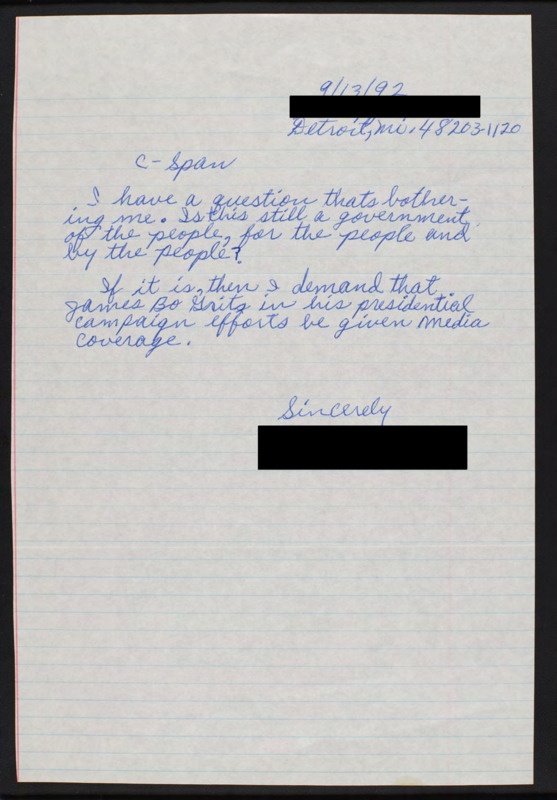 9/13/92
Detroit, Mi. 48203-1120
C-Span
I have a question thats bother-
ing me. Is this still a government
of the people, for the people and
by the people?
If it is, then I demand that
James Bo Gritz in his presidential
campaign efforts be given media
coverage.
Sincerely